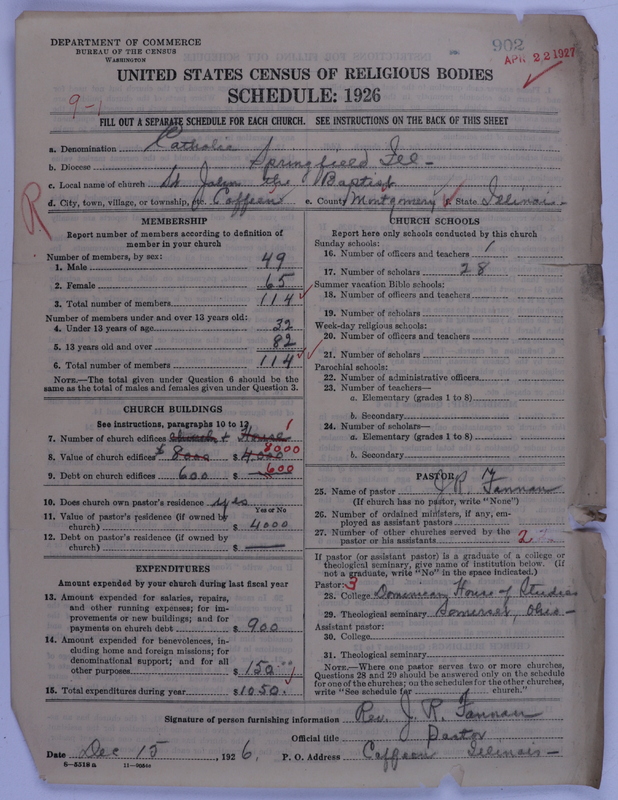 DEPARTMENT OF COMMERCE
BUREAU OF THE CENSUS
WASHINGTON
902
APR 22 1927
UNITED STATES CENSUS OF RELIGIOUS BODIES
SCHEDULE: 1926
9-1
FILL OUT A SEPARATE SCHEDULE FOR EACH CHURCH. SEE INSTRUCTIONS ON THE BACK OF THIS SHEET
a. Denomination Catholic
b. Diocese Springfield Ill-
c. Local name of church St John the Baptist
d. City, town, village, or township, etc. Coffeen e. County Montgomery f. State Illinois-
R
MEMBERSHIP
Report number of members according to definition of
member in your church
Number of members, by sex:
1. Male 49
2. Female 65
3. Total number of members 114
Number of members under and over 13 years old:
4. Under 13 years of age 32
5. 13 years old and over 82
6. Total number of members 114
NOTE.—The total given under Question 6 should be the
same as the total of males and females given under Question 3.
CHURCH BUILDINGS
See instructions, paragraphs 10 to 12
7. Number of church edifices church + House 1
8. Value of church edifices $8000 $ 4000 8000
9. Debt on church edifices 600 $ 600
10. Does church own pastor's residence yes
Yes or No
11. Value of pastor's residence (if owned by
church) $ 4000
12. Debt on pastor's residence (if owned by
church) $
EXPENDITURES
Amount expended by your church during last fiscal year
13. Amount expended for salaries, repairs,
and other running expenses; for im-
provements or new buildings; and for
payments on church debt $ 900
14. Amount expended for benevolences, in-
cluding home and foreign missions; for
denominational support; and for all
other purposes $ 150 00
15. Total expenditures during year $ 1050.
CHURCH SCHOOLS
Report here only schools conducted by this church
Sunday schools:
16. Number of officers and teachers 1
17. Number of scholars 28
Summer vacation Bible schools:
18. Number of officers and teachers
19. Number of scholars
Week-day religious schools:
20. Number of officers and teachers
21. Number of scholars
Parochial schools:
22. Number of administrative officers
23. Number of teachers—
a. Elementary (grades 1 to 8)
b. Secondary
24. Number of scholars—
a. Elementary (grades 1 to 8)
b. Secondary
PASTOR
25. Name of pastor J. R. Fannan
(If church has no pastor, write "None")
26. Number of ordained ministers, if any, em-
ployed as assistant pastors
27. Number of other churches served by the
pastor or his assistants 2
If pastor (or assistant pastor) is a graduate of a college or
theological seminary, give name of institution below. (If
not a graduate, write "No" in the space indicated.)
Pastor: 3
28. College Dominican House of Studies
29. Theological seminary Somerset, Ohio-
Assistant pastor:
30. College
31. Theological seminary
NOTE.—Where one pastor serves two or more churches,
Questions 28 and 29 should be answered only on the schedule
for one of the churches; on the schedules for the other churches,
write "See schedule for church."
Signature of person furnishing information Rev. J. R. Fannan
Official title Pastor
Date Dec 15, 1926. P. O. Address Coffeen Illinois-
8-5519 a